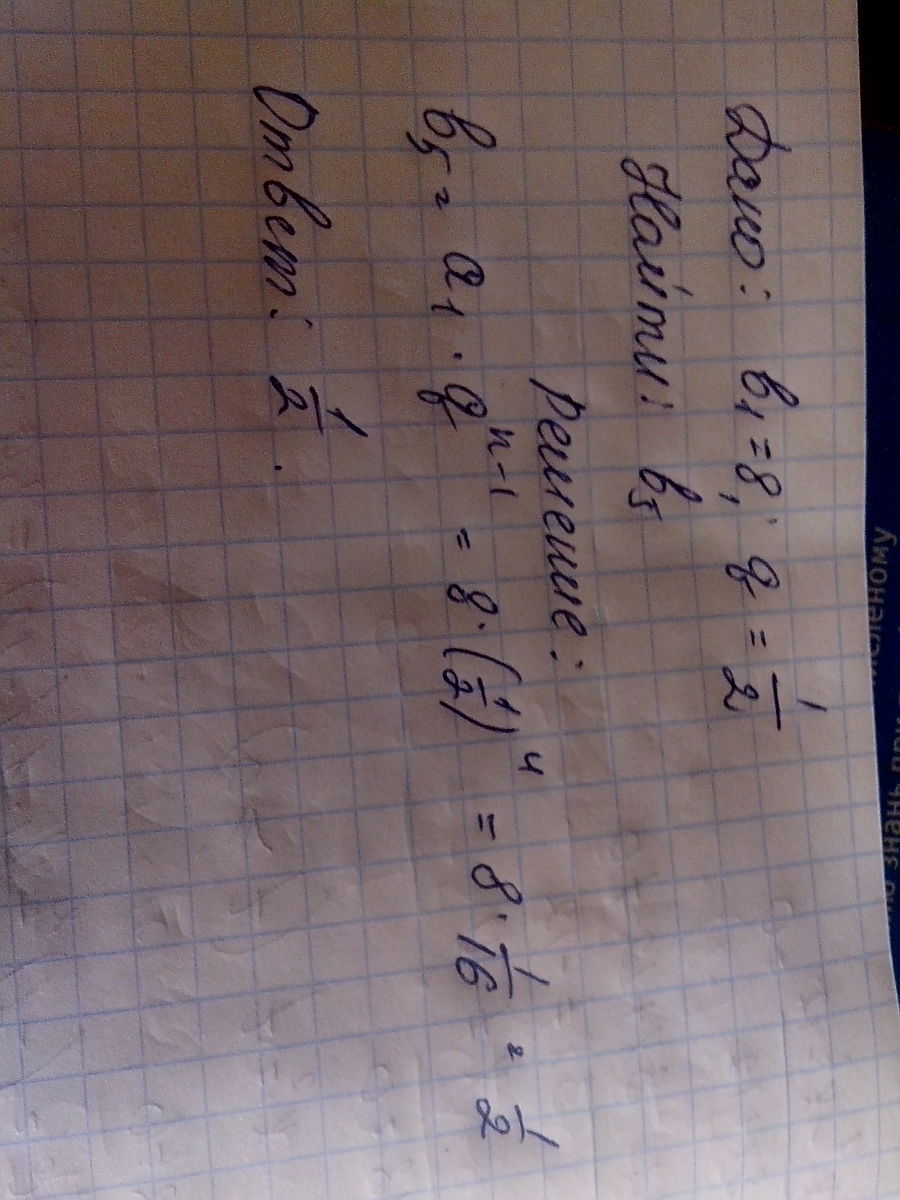 Дано: b₁ = 8, q = 1/2
Найти: b₅
Решение:
b₅ = a₁ · q^(n-1) = 8 · (1/2)^4 = 8 · 1/16 = 1/2
Ответ: 1/2.
знань